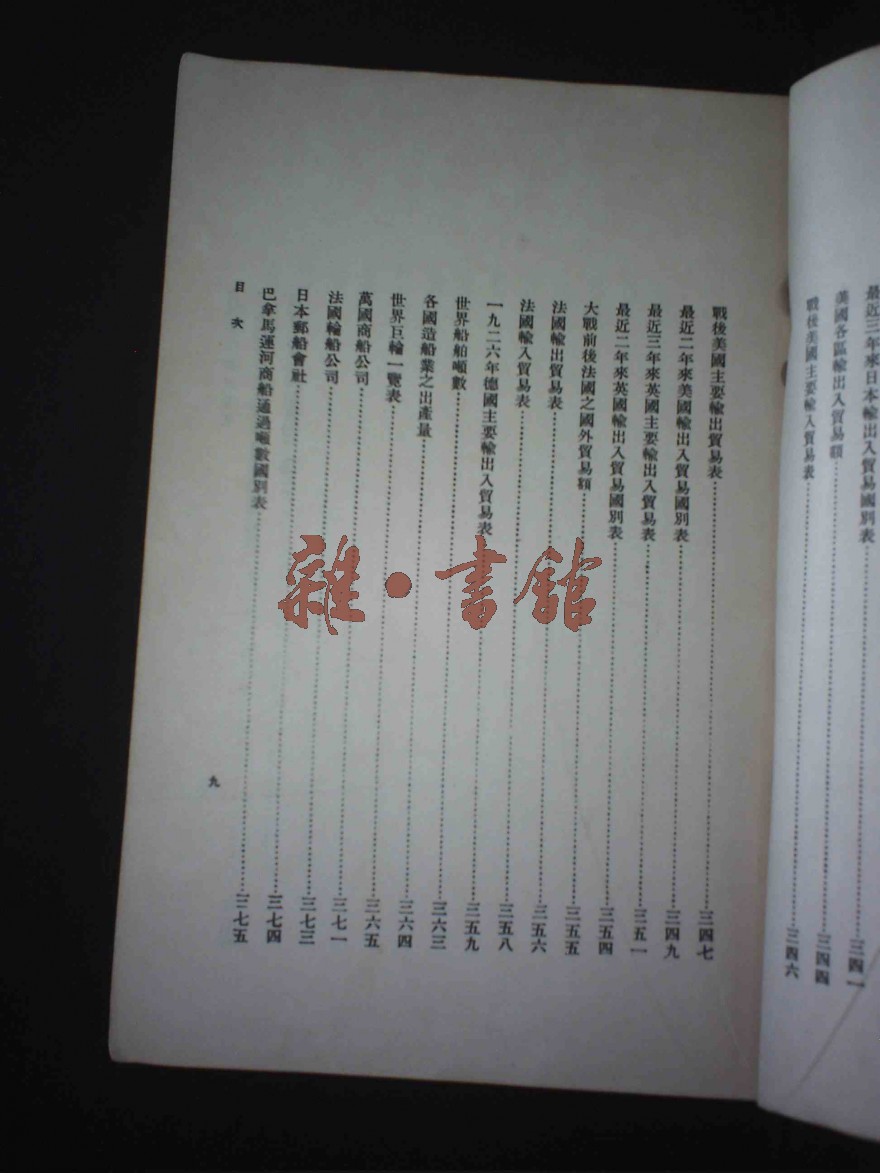 最近三年來日本輸出入貿易國別表……三四一
美國各區輸出入貿易額……三四四
戰後美國主要輸入貿易表……三四六
戰後美國主要輸出貿易表……三四七
最近二年來美國輸出入貿易國別表……三四九
最近三年來英國主要輸出入貿易表……三五一
最近二年來英國輸出入貿易國別表……三五四
大戰前後法國之國外貿易額……三五五
法國輸出貿易表……三五六
法國輸入貿易表……三五八
一九二六年德國主要輸出入貿易表……三五九
世界船舶噸數……三六三
各國造船業之出產量……三六四
世界巨輪一覽表……三六五
萬國商船公司……三七一
法國輪船公司……三七三
日本郵船會社……三七四
巴拿馬運河商船通過噸數國別表……三七五
目次
九
雜·書館